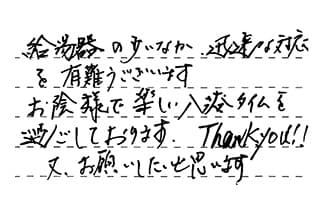 給湯器の少いなか、迅速な対応
を有難うございます
お陰様で楽しい入浴タイムを
過ごしております。Thank you!!
又、お願いしたいと思います